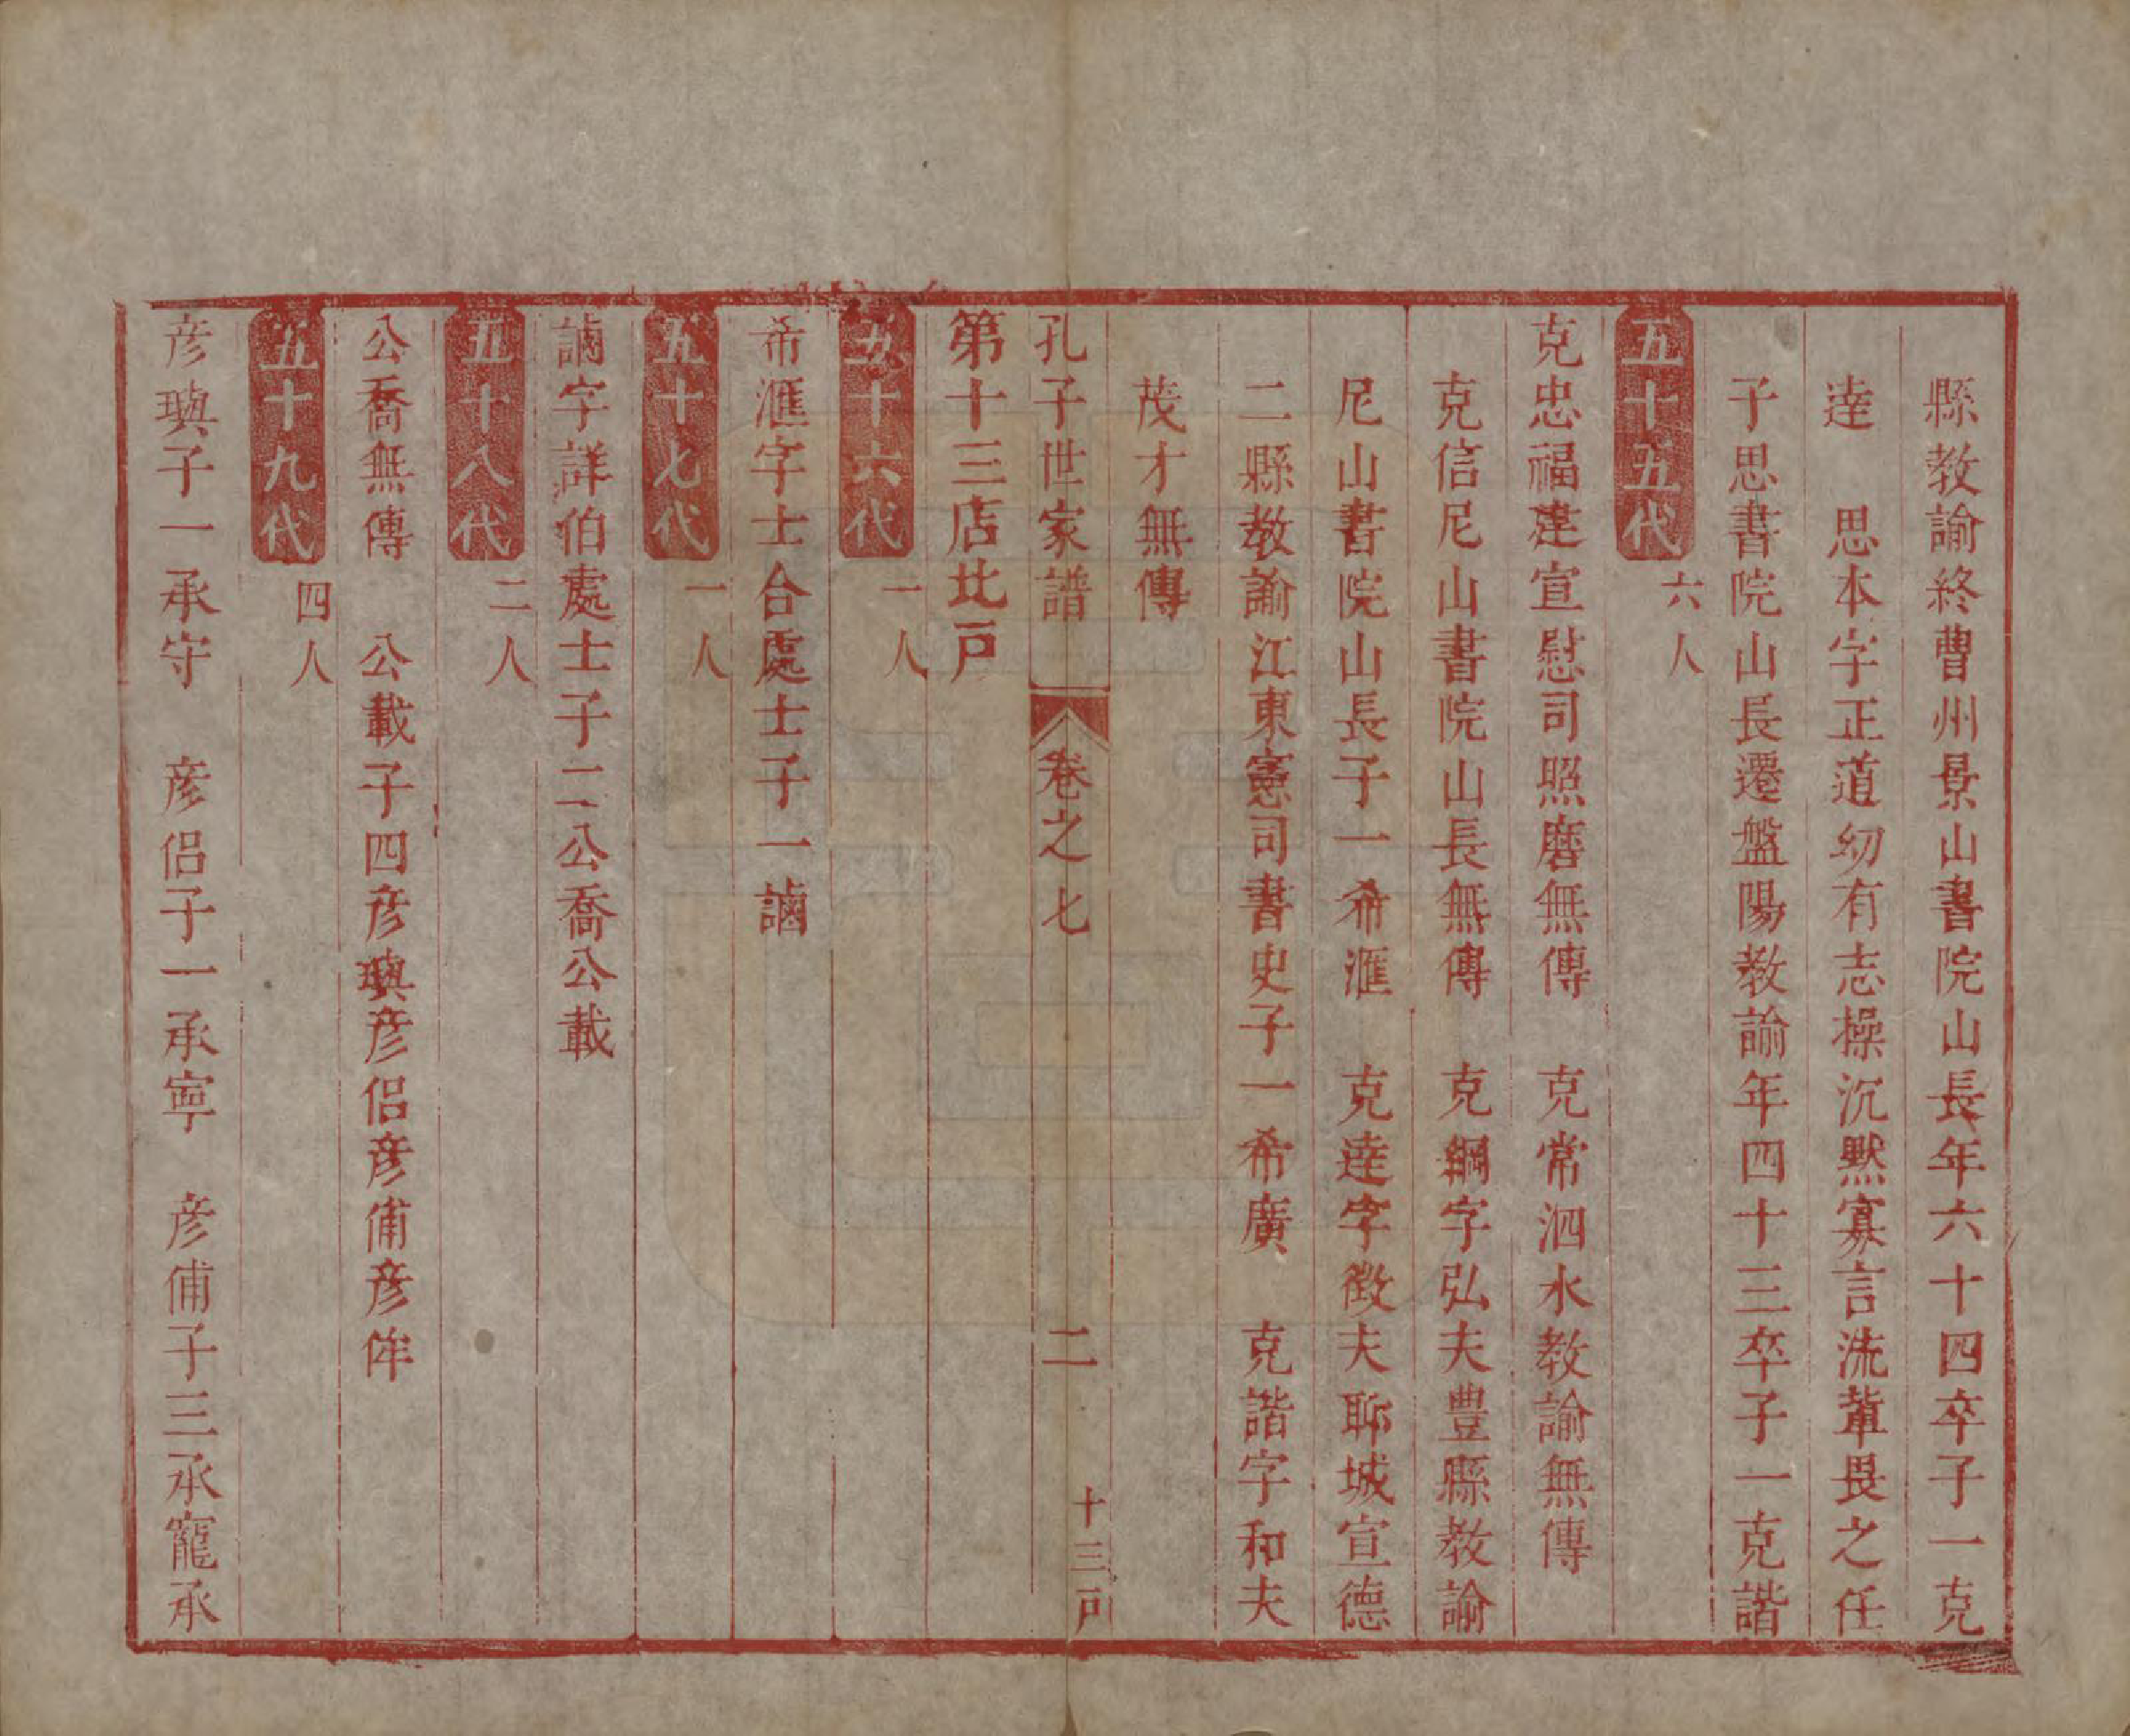 縣教諭終曹州景山書院山長年六十四卒子一克
逵　思本字正道幼有志操沉默寡言流輩畏之任
子思書院山長遷盤陽教諭年四十三卒子一克諧
五十五代　六人
克忠福建宣慰司照磨無傳　克常泗水教諭無傳
克信尼山書院山長無傳　克綱字弘夫豊縣教諭
尼山書院山長子一希滙　克逵字徴夫聊城宣德
二縣教諭江東憲司書史子一希廣　克諧字和夫
茂才無傳
孔子世家譜　卷之七　二　十三戸
第十三店北戸
五十六代　一人
希滙字士合處士子一讁
五十七代　一人
讁字詳伯處士子二公喬公載
五十八代　二人
公喬無傳　公載子四彦璵彦侣彦俌彦侔
五十九代　四人
彦璵子一承守　彦侣子一承寧　彦俌子三承寵承